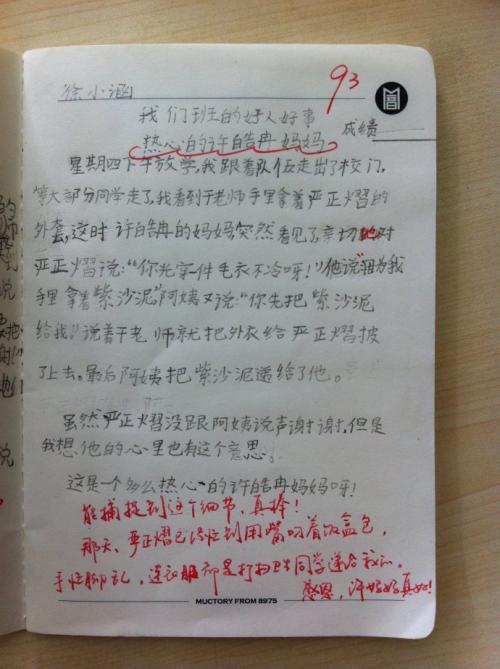 徐小涵
93
我们班的好人好事
成绩
热心的许皓冉妈妈
星期四下午放学,我跟着队伍走出了校门,
等大部分同学走了,我看到于老师手里拿着严正熠的
外套,这时许皓冉的妈妈突然看见了,亲切地对
严正熠说:“你光穿件毛衣不冷呀!”他说“因为我
手里拿着紫沙泥”阿姨又说:“你先把紫沙泥
给我!”说着于老师就把外衣给严正熠披
了上去,最后阿姨把紫沙泥递给了他。
虽然严正熠没跟阿姨说声谢谢,但是
我想,他的心里也有这个意思。
这是一个多么热心的许皓冉妈妈呀!
能捕捉到这个细节,真棒!
那天,严正熠已经忙到用嘴叼着饭盒包,
手忙脚乱,连衣服都是打扫卫生同学递给我的。
感恩,许妈妈真好!
MUCTORY FROM 8975